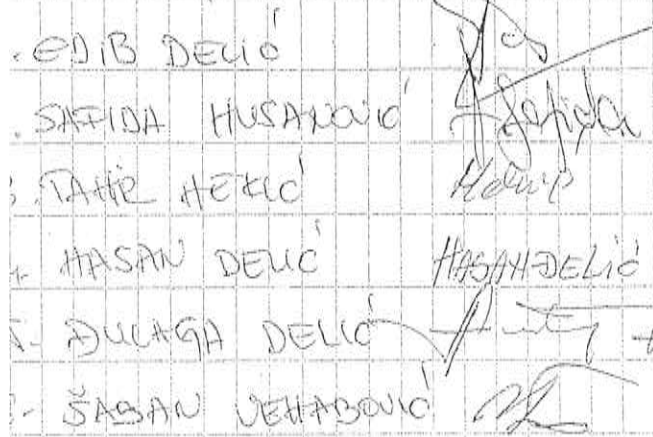 . EDIB DELIĆ
. SAFIDA HUSANOVIĆ Safida
. TAHIR HEKIĆ
. HASAN DELIĆ HASAN DELIĆ
. ĐULAGA DELIĆ
- ŠABAN VEHABOVIĆ